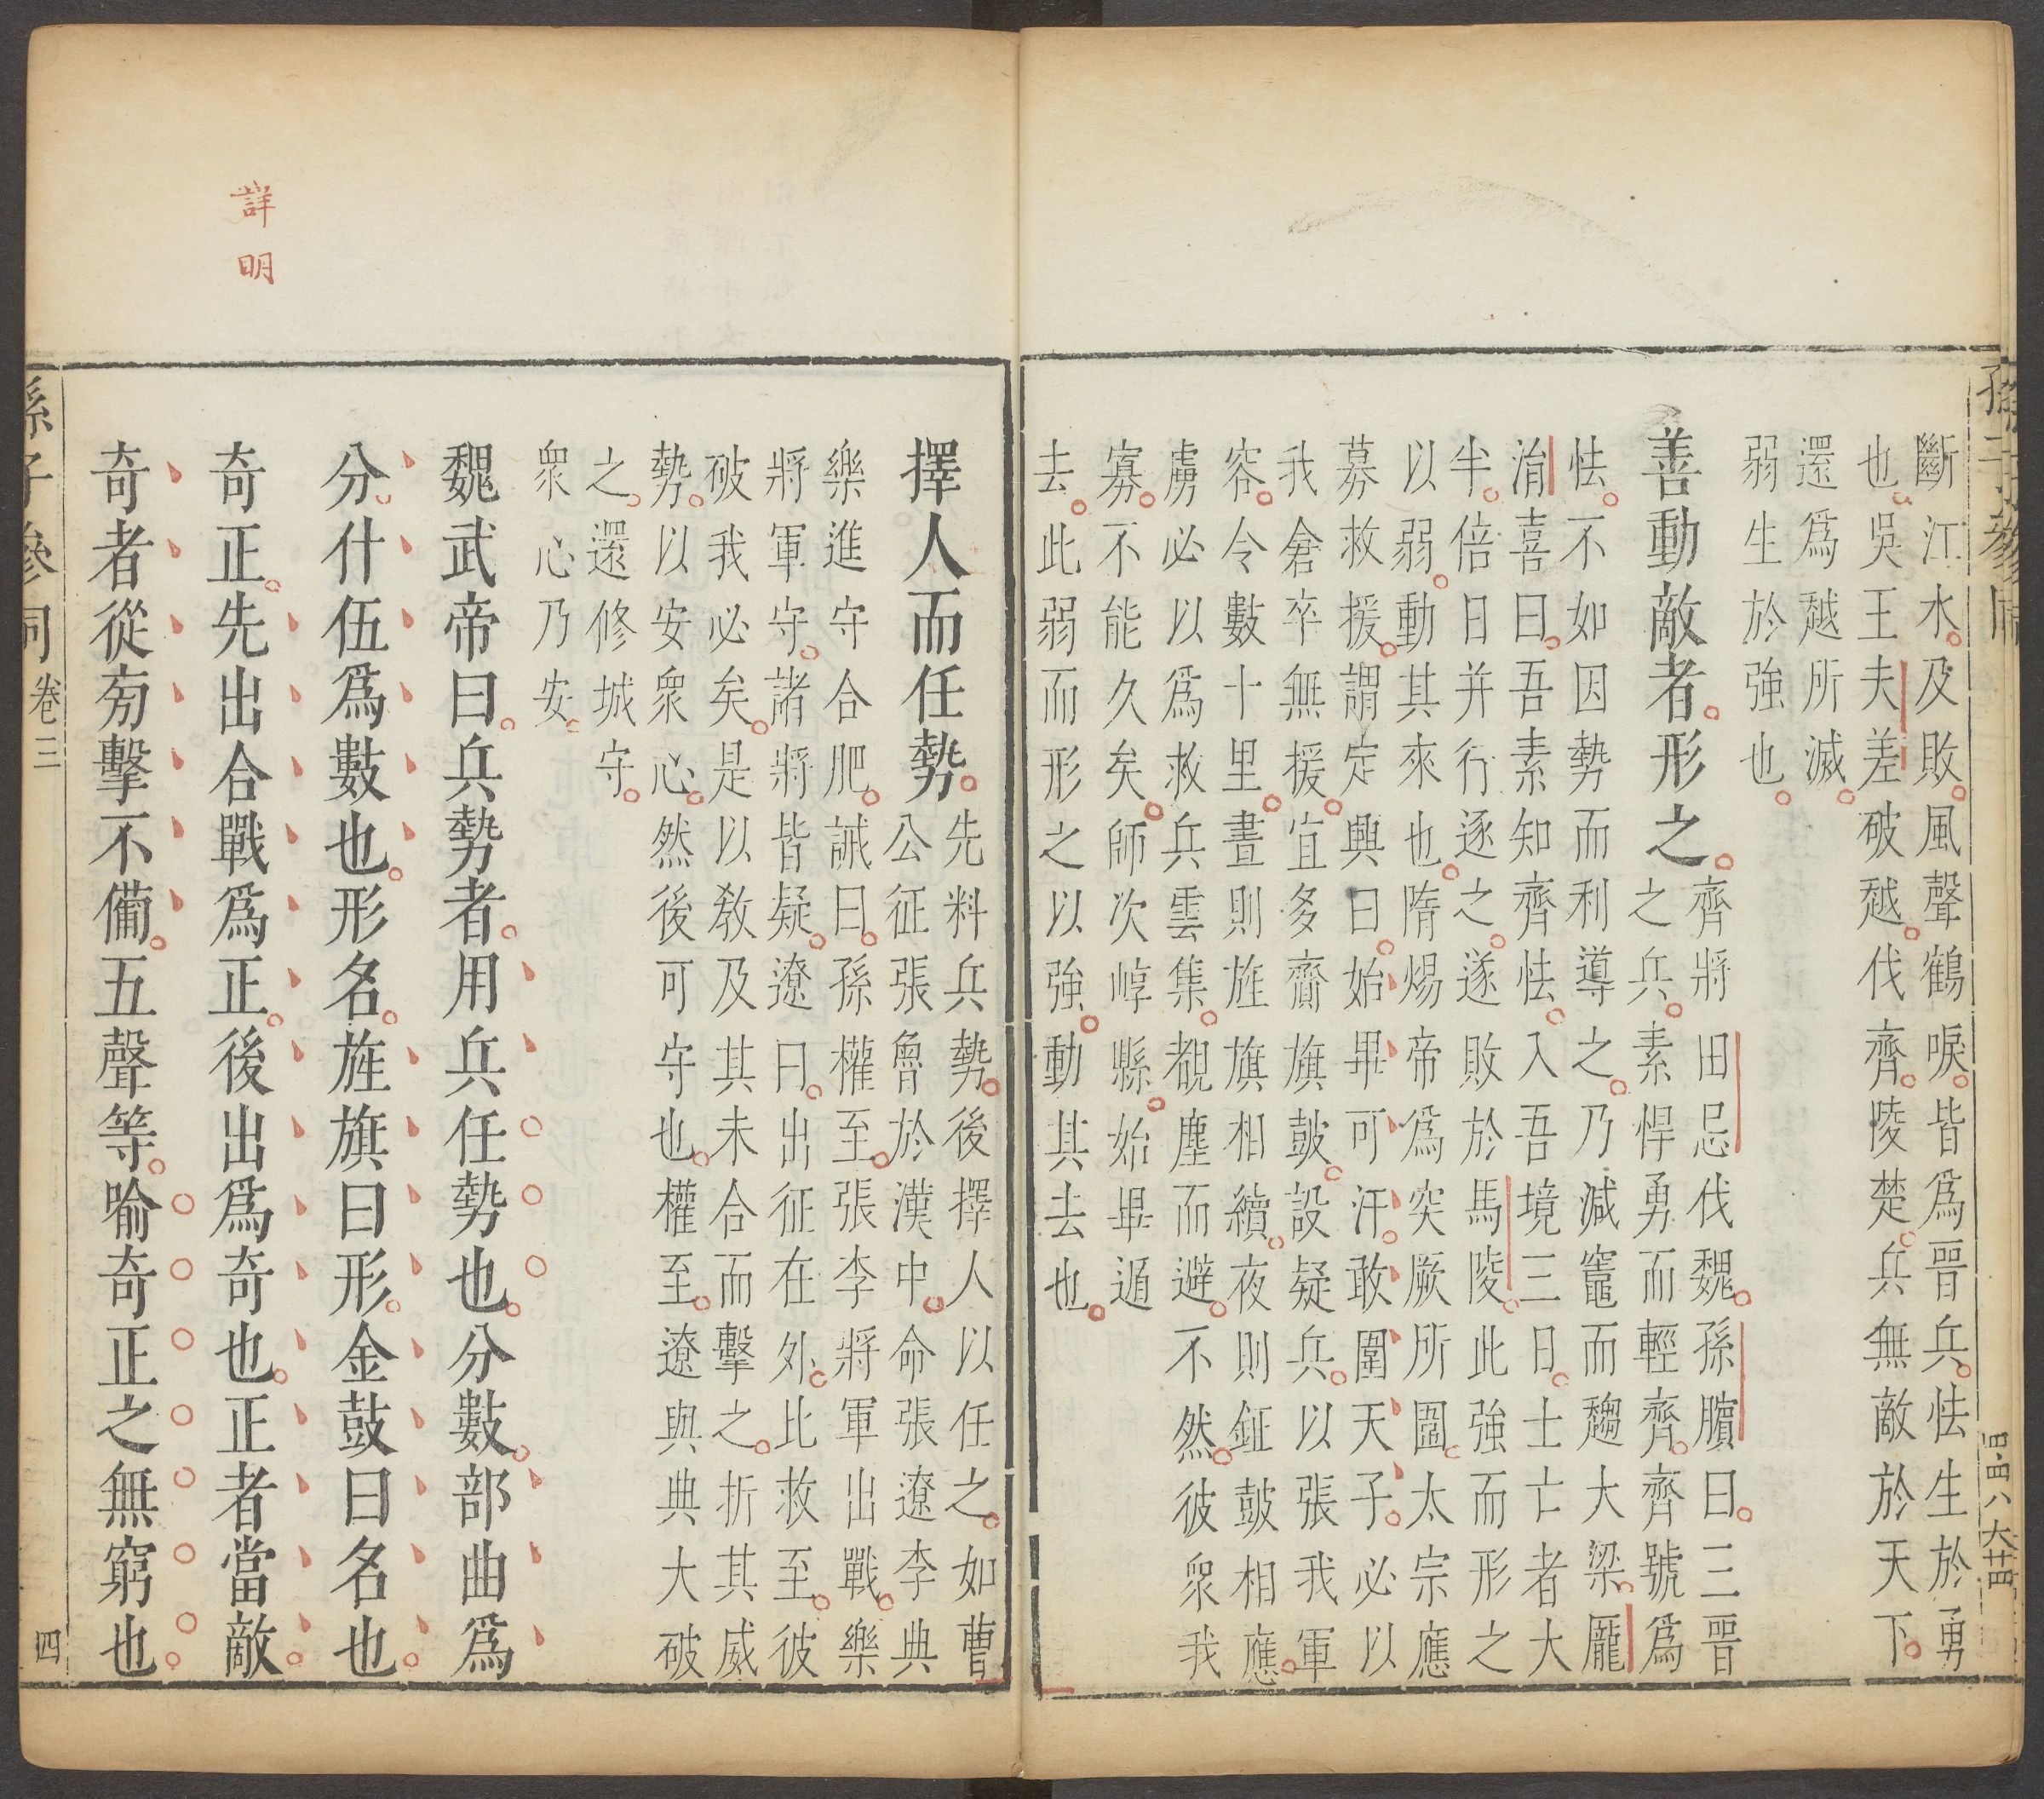 孫子參同
斷江水及敗風聲鶴唳皆爲晋兵怯生於勇
也吳王夫差破越伐齊陵楚兵無敵於天下
還爲越所滅
弱生於強也
善動敵者形之
齊將田忌伐魏孫臏曰三晋
之兵素悍勇而輕齊齊號爲
怯不如因勢而利導之乃減竈而趨大梁龐
涓喜曰吾素知齊怯入吾境三日士亡者大
半倍日并行逐之遂敗於馬陵此強而形之
以弱動其來也隋煬帝爲突厥所圍太宗應
募救援謂定興曰始畢可汗敢圍天子必以
我倉卒無援宜多齎旗鼓設疑兵以張我軍
容令數十里晝則旌旗相續夜則鉦鼓相應
虜必以爲救兵雲集覩塵而避不然彼衆我
寡不能久矣師次崞縣始畢遁
去此弱而形之以強動其去也
擇人而任勢
先料兵勢後擇人以任之如曹
公征張魯於漢中命張遼李典
樂進守合肥誡曰孫權至張李將軍出戰樂
將軍守諸將皆疑遼曰出征在外比救至彼
破我必矣是以教及其未合而擊之折其威
勢以安衆心然後可守也權至遼與典大破
之還修城守
衆心乃安
魏武帝曰兵勢者用兵任勢也分數部曲爲
分什伍爲數也形名旌旗曰形金鼓曰名也
詳明
奇正先出合戰爲正後出爲奇也正者當敵
奇者從旁擊不備五聲等喻奇正之無窮也
孫子參同 卷三 四